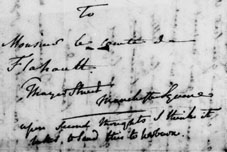 To
Monsieur le Comte de
Flahault
Mayer Street
Manchester Square
upon second thoughts I think it
to send this to